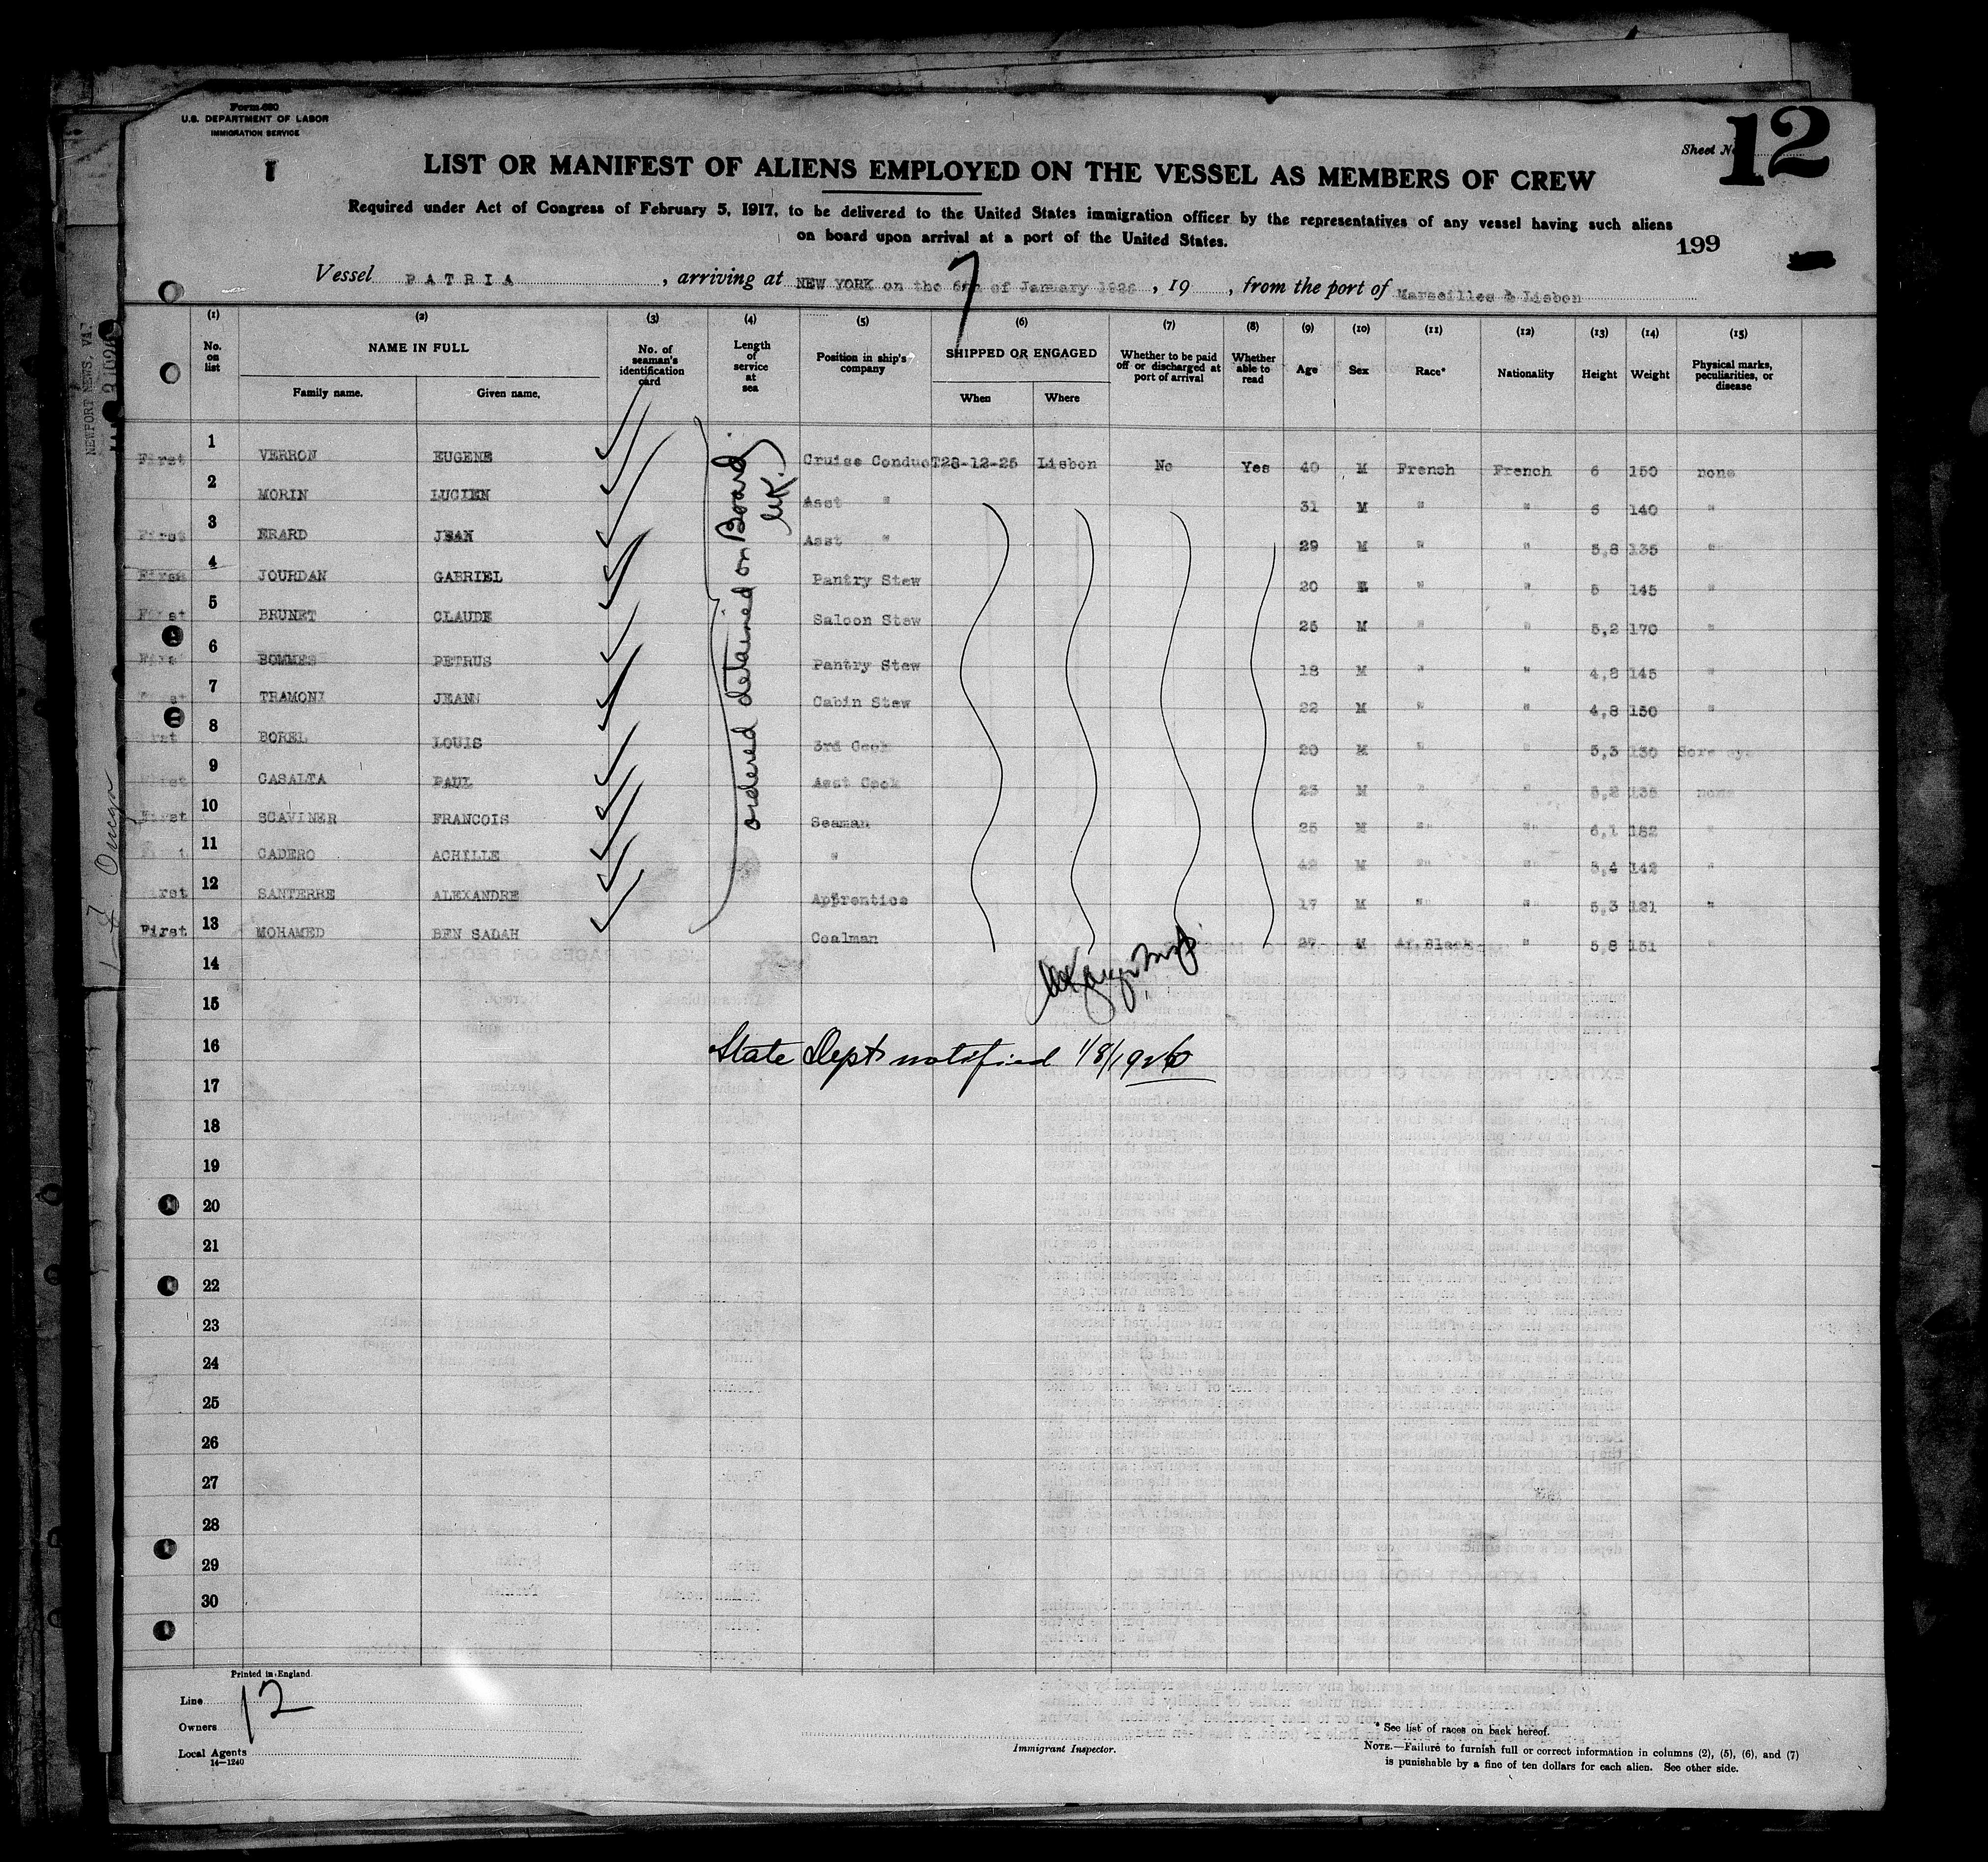 Form 680
U.S. DEPARTMENT OF LABOR
IMMIGRATION SERVICE
Sheet No. 12
LIST OR MANIFEST OF ALIENS EMPLOYED ON THE VESSEL AS MEMBERS OF CREW
Required under Act of Congress of February 5, 1917, to be delivered to the United States immigration officer by the representatives of any vessel having such aliens
on board upon arrival at a port of the United States.
199
7
Vessel PATRIA, arriving at NEW YORK on the 6th of January 1926, 19 , from the port of Marseilles & Lisbon
(1) (2) (3) (4) (5) (6) (7) (8) (9) (10) (11) (12) (13) (14) (15)
No. on list NAME IN FULL Family name. Given name. No. of seaman's identification card Length of service at sea Position in ship's company SHIPPED OR ENGAGED When Where Whether to be paid off or discharged at port of arrival Whether able to read Age Sex Race* Nationality Height Weight Physical marks, peculiarities, or disease
First 1 VERRON EUGENE Cruise Conduct 28-12-25 Lisbon No Yes 40 M French French 6 150 none
2 MORIN LUCIEN Asst " 31 M " " 6 140 "
First 3 ERARD JEAN Asst " 29 M " " 5,8 135 "
First 4 JOURDAN GABRIEL Pantry Stew 20 M " " 5 145 "
First 5 BRUNET CLAUDE Saloon Stew 25 M " " 5,2 170 "
First 6 BOMMES PETRUS Pantry Stew 18 M " " 4,8 145 "
First 7 TRAMONI JEAN Cabin Stew 22 M " " 4,8 150 "
First 8 BOREL LOUIS 3rd Cook 20 M " 5,3 130 Sore eye
First 9 CASALTA PAUL Asst Cook 23 M " " 5,2 135 none
First 10 SCAVINER FRANCOIS Seaman 25 M " " 6,1 182 "
First 11 CADERO ACHILLE " 42 M " " 5,4 142 "
First 12 SANTERRE ALEXANDRE Apprentice 17 M " " 5,3 121 "
First 13 MOHAMED BEN SADAH Coalman 27 M Af. Black " 5,8 151
ordered detained on Board
14
15
16
State Dept notified 1/8/1926
17
18
19
20
21
22
23
24
25
26
27
28
29
30
Printed in England.
Line
12
Owners
Local Agents
14—1240
Immigrant Inspector.
* See list of races on back hereof.
NOTE.—Failure to furnish full or correct information in columns (2), (5), (6), and (7)
is punishable by a fine of ten dollars for each alien. See other side.
NEWPORT NEWS, VA.